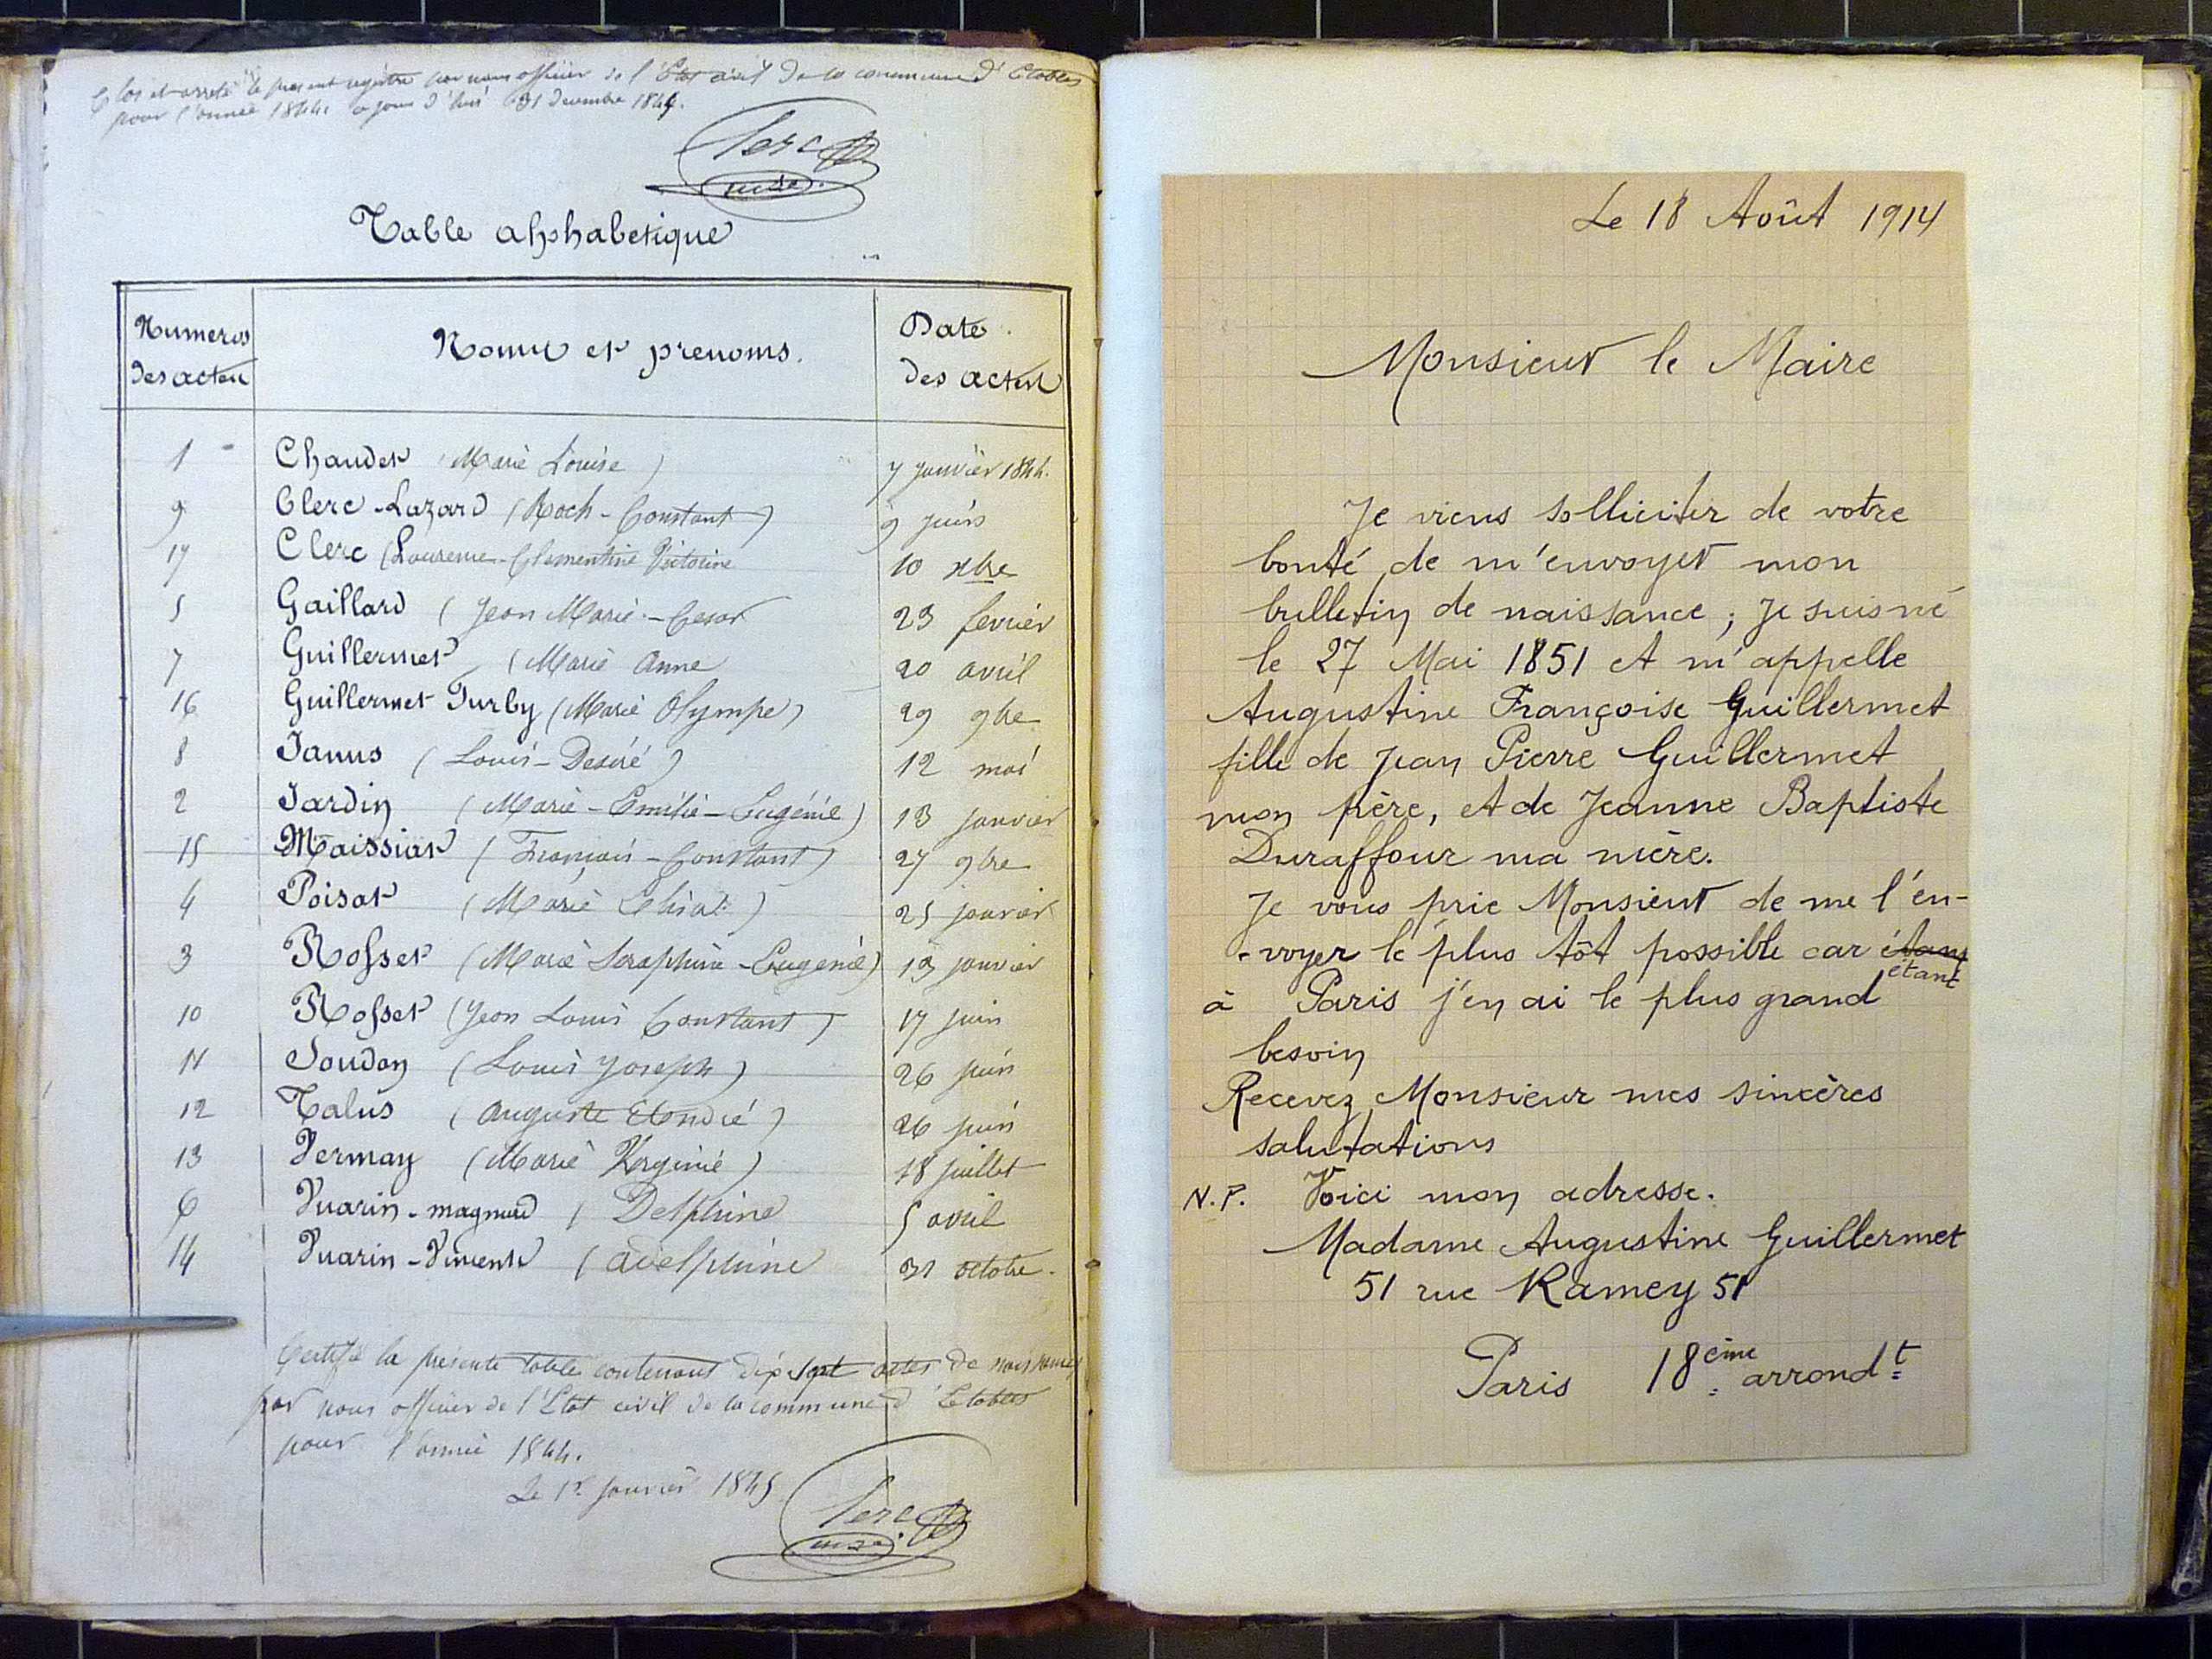 Clos et arreté le present registre par nous officier de l'Etat civil de la commune d'Etables
pour l'année 1844. a jour d'hui 31 decembre 1844.
Clerc
maire
Table alphabetique
Numeros
des actes
Noms et prenoms.
Date
des actes
1 Chaudet (Marie Louise) 7 janvier 1844.
9 Clerc-Lazard (Roch-Constant) 9 juin
17 Clerc (Laurence-Clementine Victorine 10 xbre
5 Gaillard (Jean Marie-Cesar 23 fevrier
7 Guillermet (Marie Anne 20 avril
16 Guillermet Turby (Marie Olympe) 29 9bre
8 Janus (Louis-Desiré) 12 mai
2 Jardin (Marie-Emilie-Eugénie) 13 janvier
15 Maissiat (François-Constant) 27 9bre
4 Poisat (Marie) 25 janvier
3 Rosset (Marie Seraphine-Eugenie) 13 janvier
10 Rosset (Jean Louis Constant) 17 juin
11 Soudon (Louis Joseph) 26 juin
12 Talus (auguste) 26 juin
13 Vermay (Marie Virginie) 18 juillet
6 Vuarin-magnard (Delphine 5 avril
14 Vuarin-Vincent (adelphine 31 octobre.
Certifié la présente table contenant dix sept actes de naissances
par nous officier de l'Etat civil de la commune d'Etables
pour l'année 1844.
Le 1er janvier 1845
Clerc
maire
Le 18 Août 1914
Monsieur le Maire
Je viens solliciter de votre
bonté de m'envoyer mon
bulletin de naissance ; Je suis né
le 27 Mai 1851 et m'appelle
Augustine Françoise Guillermet
fille de Jean Pierre Guillermet
mon père, et de Jeanne Baptiste
Duraffour ma mère.
Je vous prie Monsieur de me l'en-
-voyer le plus tôt possible car étant
étant
à Paris j'en ai le plus grand
besoin
Recevez Monsieur mes sincères
salutations
N.P. Voici mon adresse.
Madame Augustine Guillermet
51 rue Ramey 51
Paris 18ème arrondt